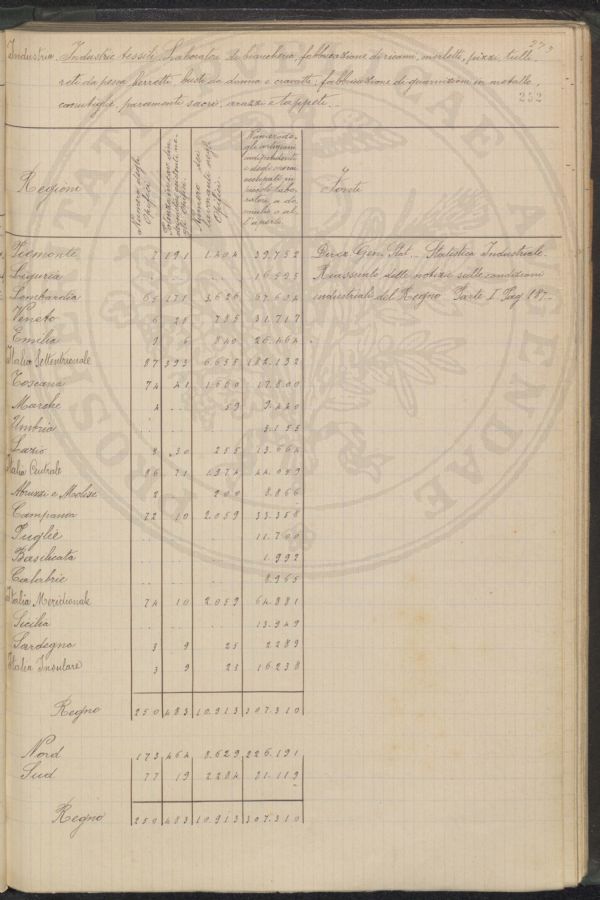 273
Industria. Industrie tessili. Laboratori di biancheria, fabbricazione di ricami, merletti, pizzi, tulle
reti da pesca berretti, busti da donna e cravatte, fabbricazione di guarnizioni in metallo,
conterie, paramenti sacri, arazzi e tappeti.
252
Regioni
Numero degli Opifici
Numero dei lavoranti negli Opifici
Numero degli artigiani indipendenti e degli operai occupati in piccoli laboratori, a domicilio o all'aperto
Fonti
Piemonte 7 191 1.404 39.752 Direz. Gen. Stat. Statistica Industriale.
Liguria 16.593 Riassunto delle notizie sulle condizioni
Lombardia 65 171 3.626 67.604 industriali del Regno Parte I Pag 187
Veneto 6 28 785 31.717
Emilia 9 6 840 26.464
Italia Settentrionale 87 393 6.655 182.132
Toscana 74 41 1.600 17.800
Marche 4 59 9.440
Umbria 3.155
Lazio 8 30 255 13.664
Italia Centrale 86 71 1.974 44.059
Abruzzi e Molise 2 200 8.866
Campania 72 10 2.059 33.358
Puglie 11.700
Basilicata 1.992
Calabrie 8.965
Italia Meridionale 74 10 2.059 64.881
Sicilia 13.949
Sardegna 3 9 25 2289
Italia Insulare 3 9 25 16.238
Regno 250 483 10.913 307.310
Nord 173 464 8.629 226.191
Sud 77 19 2284 81.119
Regno 250 483 10.913 307.310